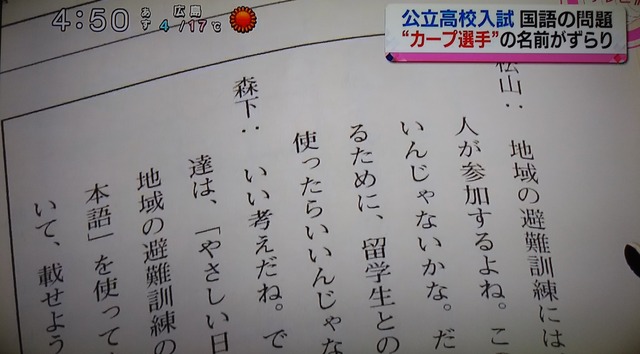 4:50
あす
広島
4/17℃
公立高校入試 国語の問題
“カープ選手”の名前がずらり
松山： 地域の避難訓練には
人が参加するよね。こ
いんじゃないかな。だ
るために、留学生との
使ったらいいんじゃな
森下： いい考えだね。で
達は、「やさしい日
地域の避難訓練の
本語」を使って
いて、載せよう